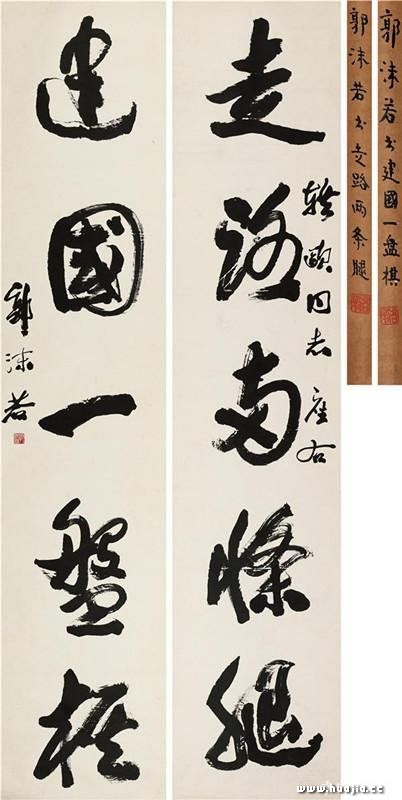 郭沫若书建國一盘棋
郭沫若书走路两条腿
走路两條腿
同志座右
建國一盤棋
郭沫若
www.huajia.cc